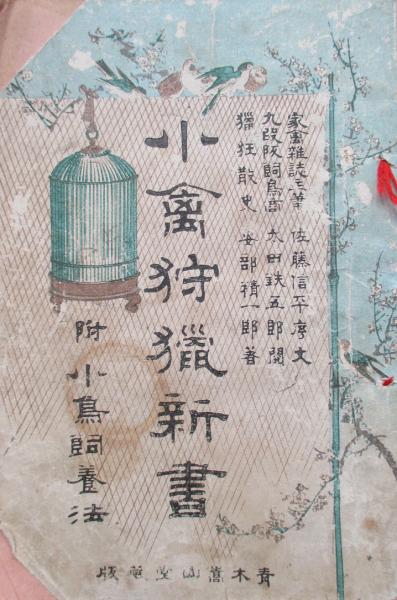 家禽雑誌主筆 佐藤信平序文
九段阪飼鳥商 太田鉄五郎閲
獵狂散史 安部積一郎著
小禽狩獵新書
附 小鳥飼養法
青木嵩山堂蔵版